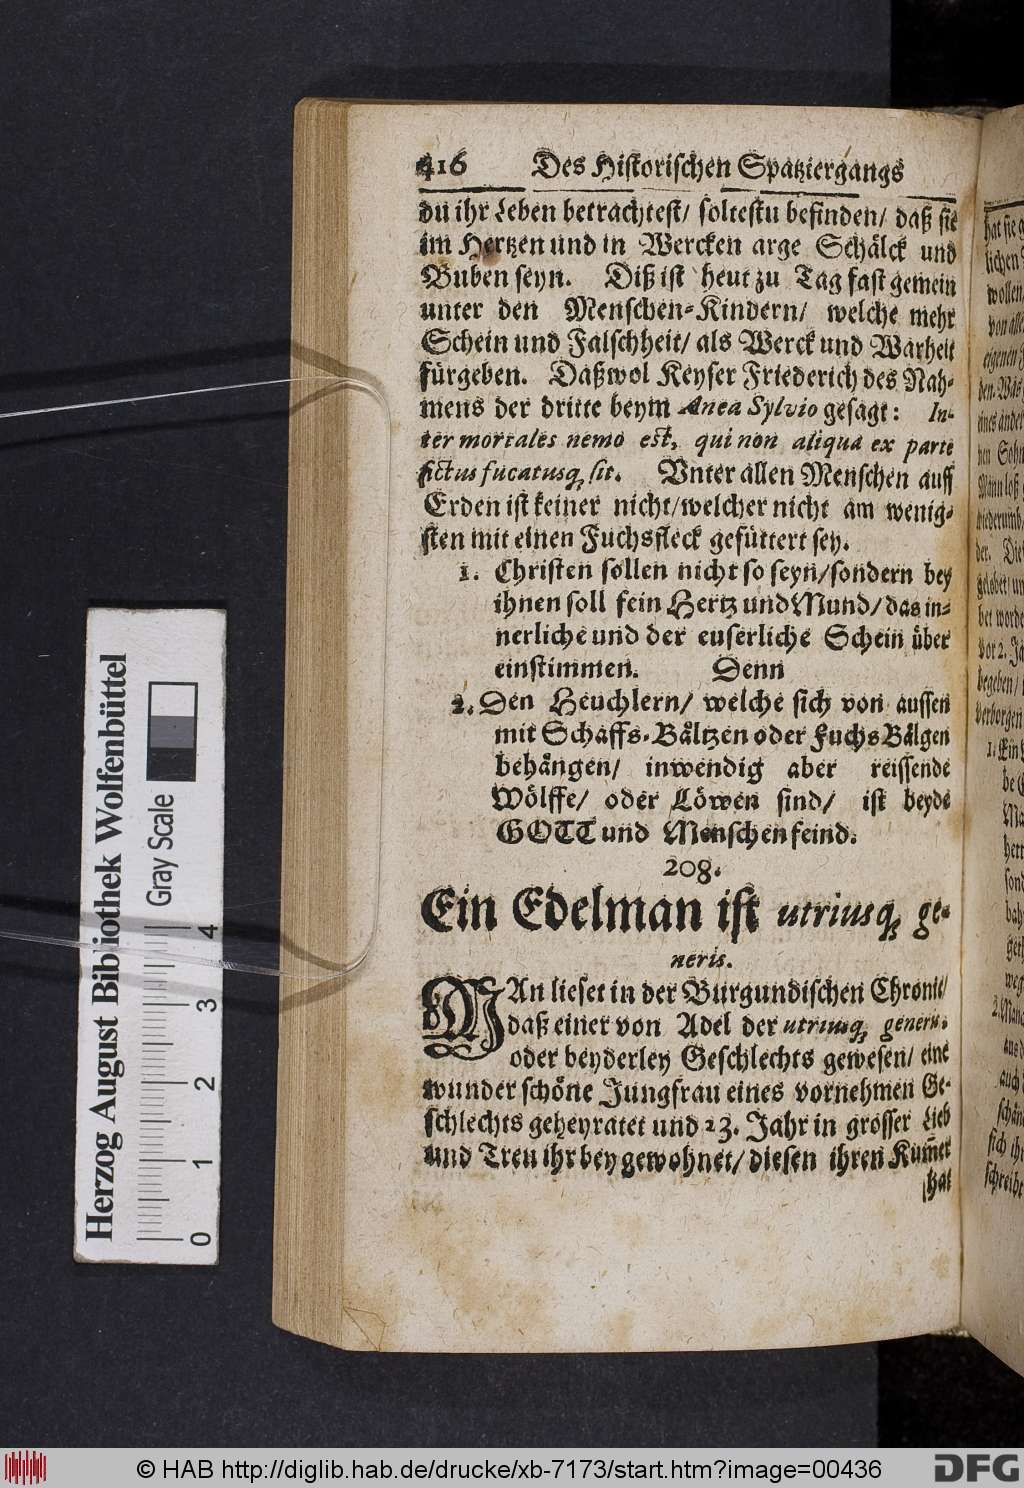 416 Des Historischen Spatziergangs
du ihr Leben betrachtest/ soltestu befinden/ daß sie
im Hertzen und in Wercken arge Schälck und
Buben seyn. Diß ist heut zu Tag fast gemein
unter den Menschen-Kindern/ welche mehr
Schein und Falschheit/ als Werck und Warheit
fürgeben. Daß wol Keyser Friederich des Nah-
mens der dritte beym Ænea Sylvio gesagt: In-
ter mortales nemo est, qui non aliqua ex parte
fictus fucatusq́; sit. Vnter allen Menschen auff
Erden ist keiner nicht/ welcher nicht am wenig-
sten mit einen Fuchsfleck gefüttert sey.
1. Christen sollen nicht so seyn/ sondern bey
ihnen soll fein Hertz und Mund/ das in-
nerliche und der euserliche Schein über
einstimmen. Denn
2. Den Heuchlern/ welche sich von aussen
mit Schaffs-Bältzen oder FuchsBälgen
behängen/ inwendig aber reissende
Wölffe/ oder Löwen sind/ ist beyde
GOTT und Menschen feind.
208.
Ein Edelman ist utriusq́; ge-
neris.
MAn lieset in der Burgundischen Chronic/
daß einer von Adel der utriusq́; generis.
oder beyderley Geschlechts gewesen/ eine
wunder schöne Jungfrau eines vornehmen Ge-
schlechts geheyratet und 23. Jahr in grosser Lieb
und Treu ihr bey gewohnet/ diesen ihren Kum̃er
hat
hat sie
lichen
wollen
von alle
eigenen
den. Was
eines andern
hen Sohn
Mann loß
wiederumb
der. Die
gelabet/
bet worde
vor 2. Ja
begeben/
verborgen
1. Ein
2. Man
auch
schän
sich ihr
schreibt
Herzog August Bibliothek Wolfenbüttel
Gray Scale
0 1 2 3 4
© HAB http://diglib.hab.de/drucke/xb-7173/start.htm?image=00436
DFG